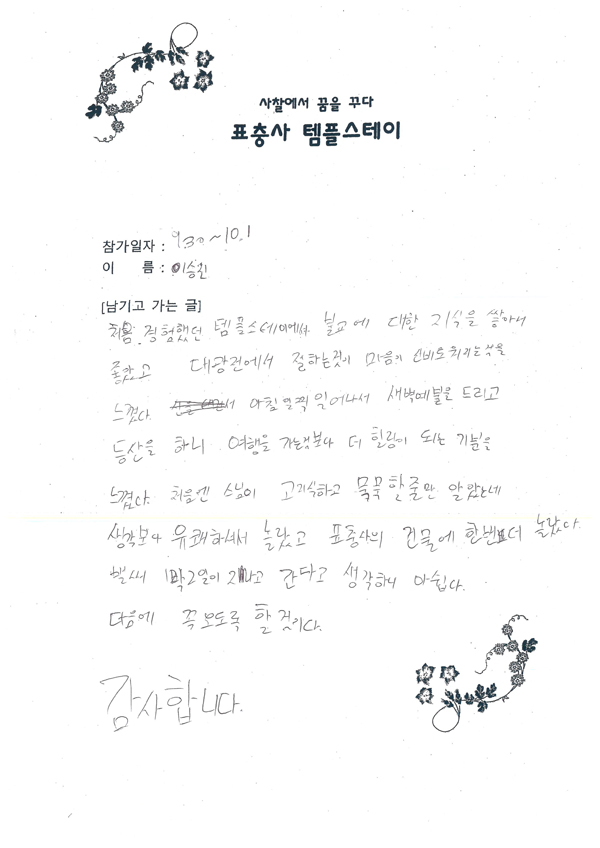 사찰에서 꿈을 꾸다
표충사 템플스테이
참가일자 : 9.30~10.1
이 름 : 이승진
[남기고 가는 글]
처음 경험했던 템플스테이에서 불교에 대한 지식을 쌓아서
좋았고 대광전에서 절하는것이 마음이 신비로워지는것을
느꼈다. 아침 일찍 일어나서 새벽예불을 드리고
등산을 하니 여행을 가는것보다 더 힐링이 되는 기분을
느꼈다. 처음엔 스님이 고지식하고 묵묵한줄만 알았는데
생각보다 유쾌하셔서 놀랐고 표충사의 건물에 한번더 놀랐다.
벌써 1박2일이 지나고 간다고 생각하니 아쉽다.
다음에 꼭오도록 할 것이다.
감사합니다.